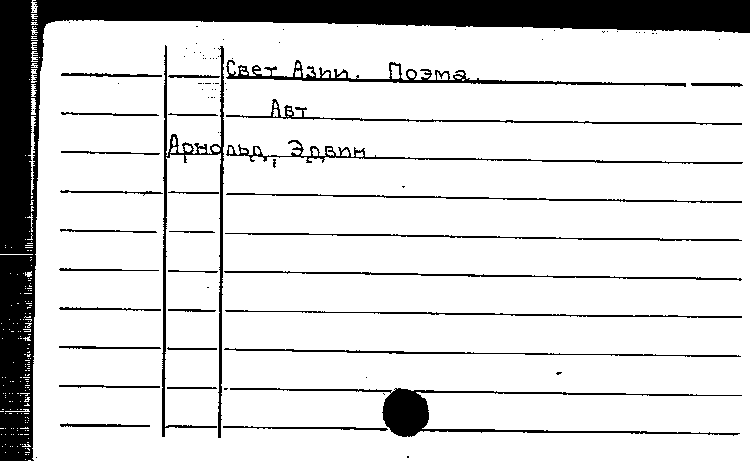 Свет Азии. Поэма.
Авт
Арнольд, Эдвин.